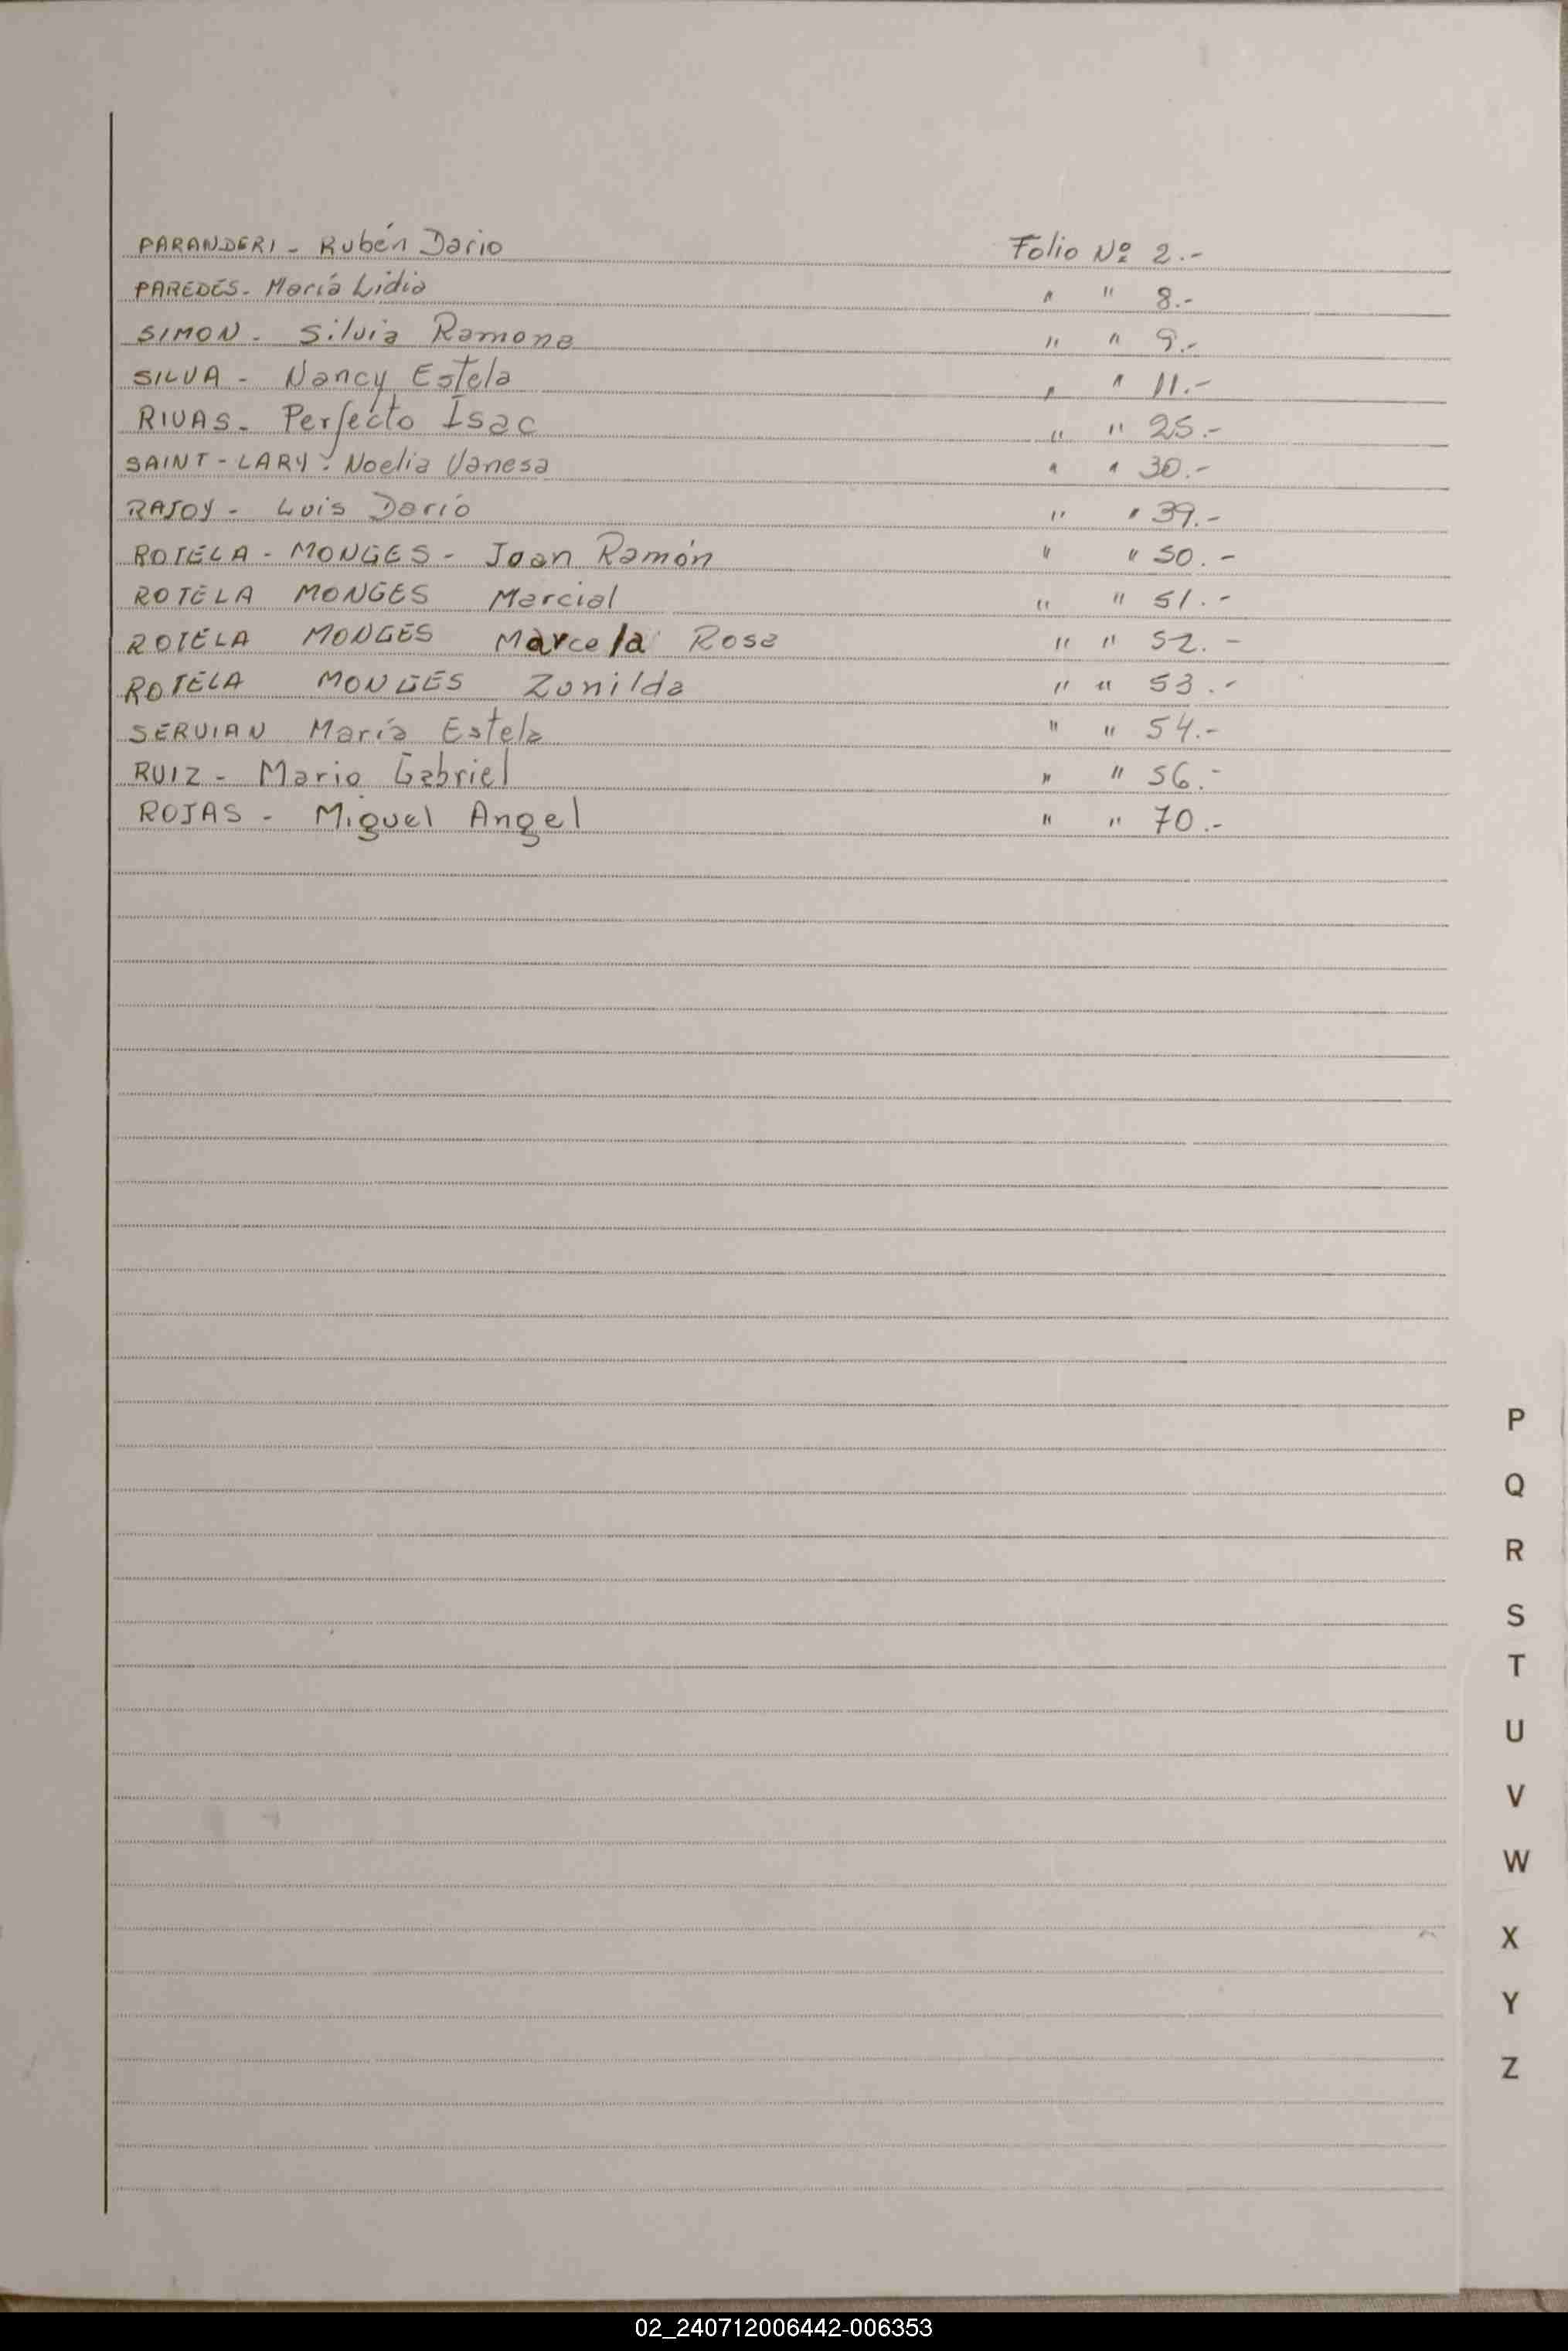 PARANDERI - Rubén Dario Folio Nº 2.-
PAREDES - María Lidia " " 8.-
SIMON - Silvia Ramona " " 9.-
SILVA - Nancy Estela " " 11.-
RIVAS - Perfecto Isac " " 25.-
SAINT - LARY - Noelia Vanesa " " 30.-
RAJOY - Luis Darío " " 39.-
ROTELA - MONGES - Joan Ramón " " 50.-
ROTELA MONGES Marcial " " 51.-
ROTELA MONGES Marcela Rosa " " 52.-
ROTELA MONGES Zunilda " " 53.-
SERVIAN María Estela " " 54.-
RUIZ - Mario Gabriel " " 56.-
ROJAS - Miguel Angel " " 70.-
P
Q
R
S
T
U
V
W
X
Y
Z
02_240712006442-006353